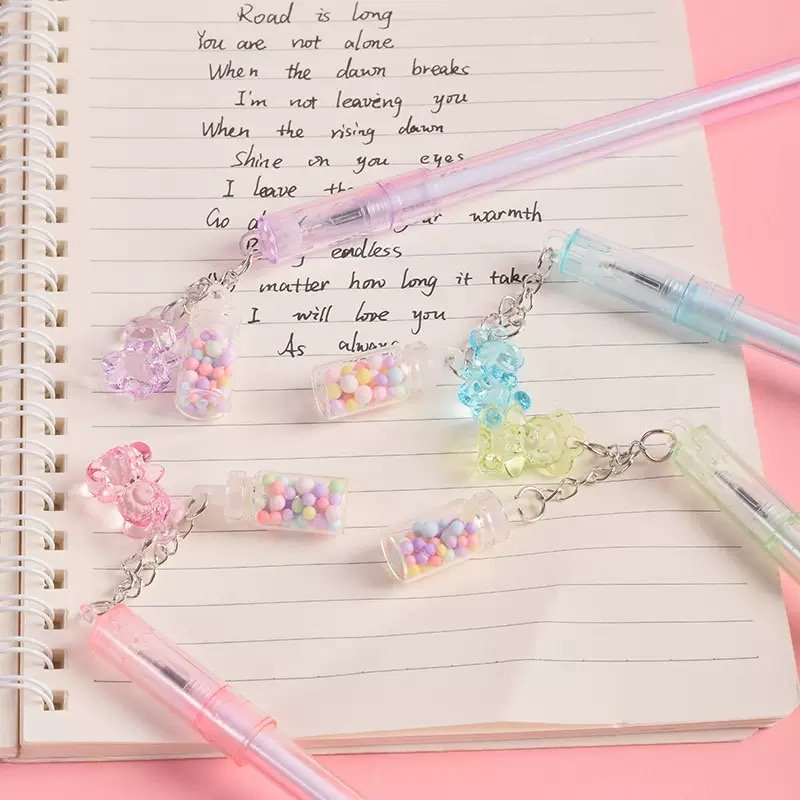 Road is long
You are not alone
When the dawn breaks
I'm not leaving you
When the rising dawn
Shine on you eyes
I leave
Go warmth
endless
matter how long it takes
I will love you
As always